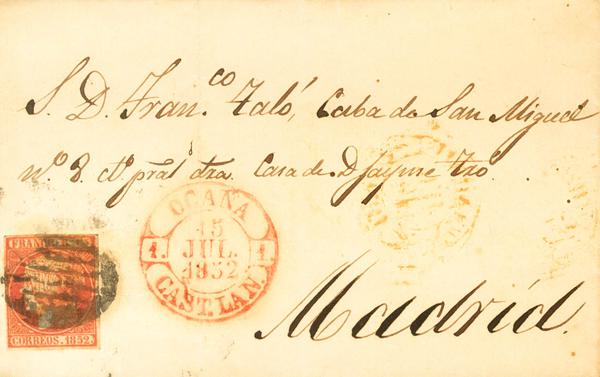 S. D. Fran.co Taló, Caba do San Miguel
nº 8. cto. pral dra. Casa de D Jayme Tro
OCAÑA
15
JUL.
1852
1. 1.
CAST. LAN.
FRAN
CORREOS. 1852.
Madrid.